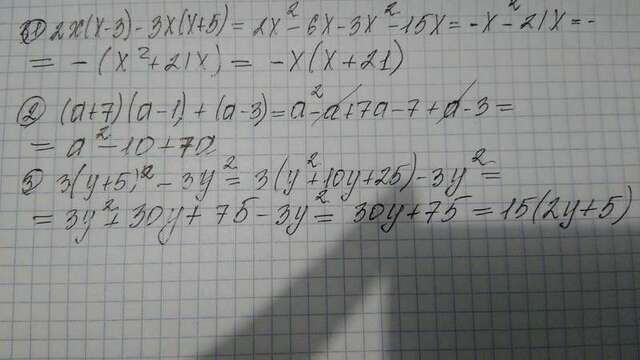 ① 2x(x-3) - 3x(x+5) = 2x² - 6x - 3x² - 15x = -x² - 21x = -
= -(x² + 21x) = -x(x + 21)
② (a+7)(a-1) + (a-3) = a² - a + 7a - 7 + a - 3 =
= a² - 10 + 7a
③ 3(y+5)² - 3y² = 3(y² + 10y + 25) - 3y² =
= 3y² + 30y + 75 - 3y² = 30y + 75 = 15(2y + 5)